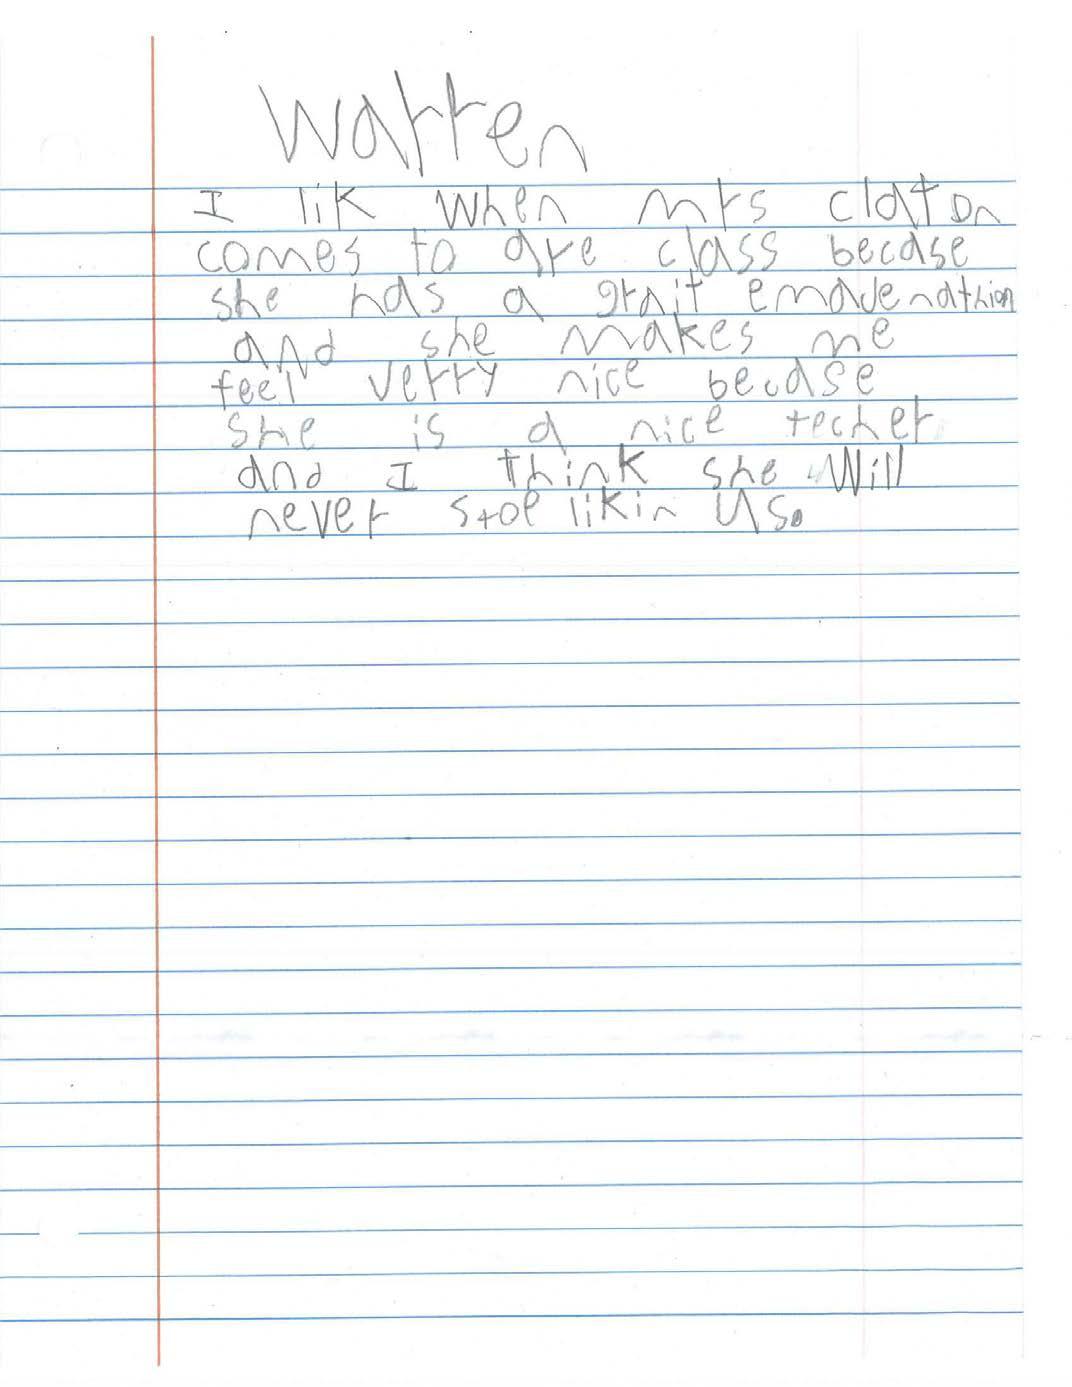 Warren
I lik when mrs claton
comes to are class becase
she has a grait emavenathion
and she makes me
feel verry nice becase
she is a nice techer
and I think she Will
never stop likin us.